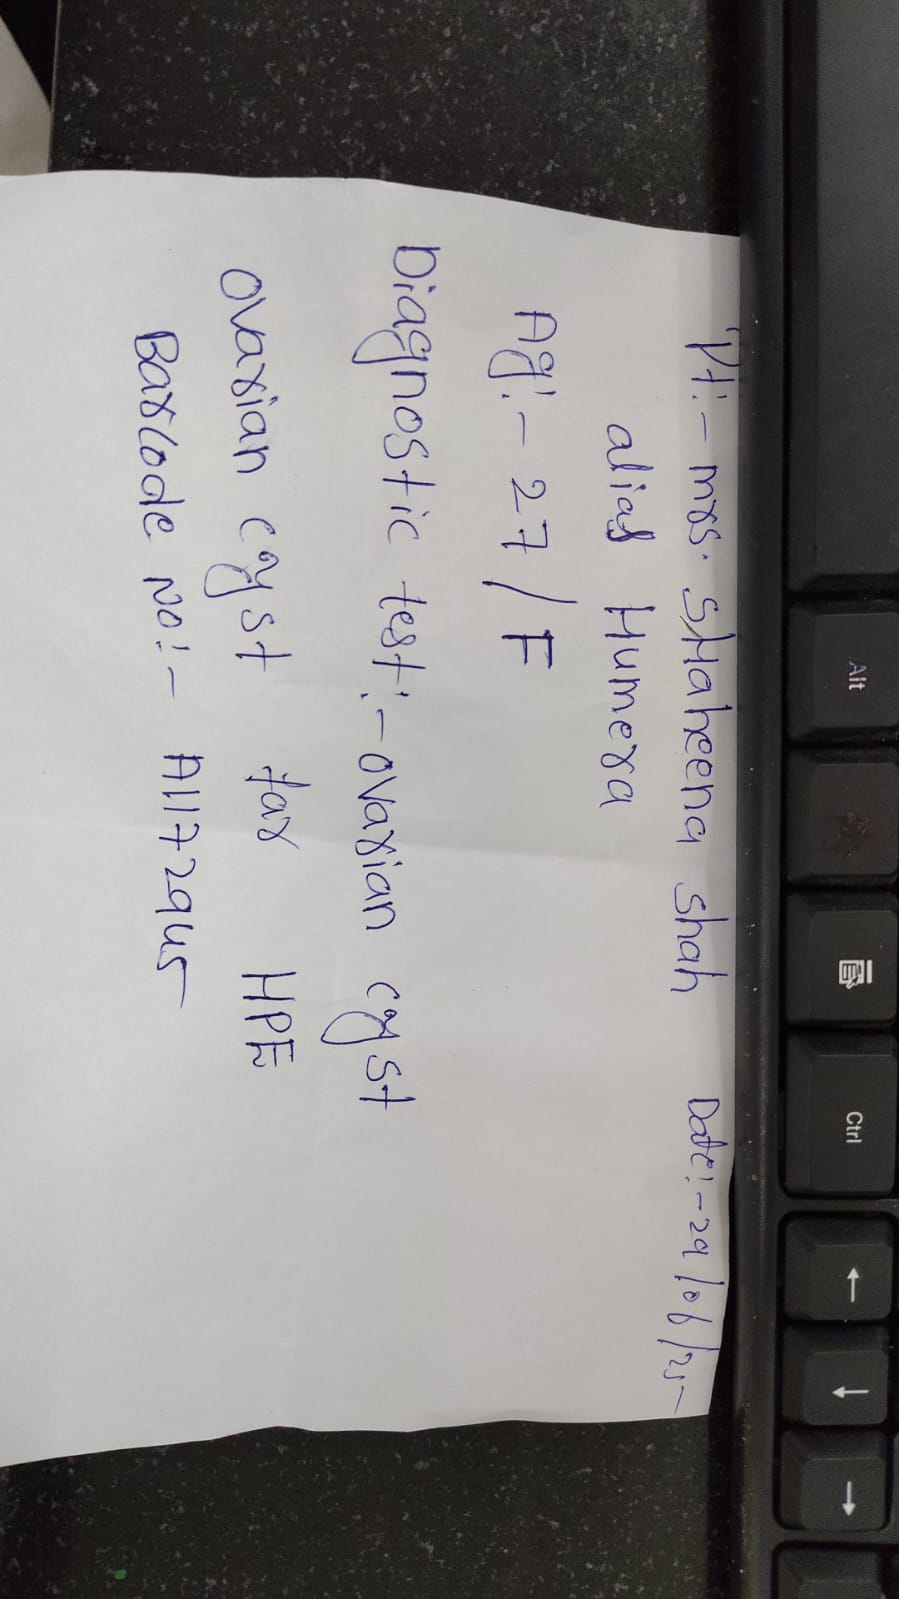 Pt:- mrs. SHaheena shah Date:- 29/06/25
alias Humera
Ag:- 27/F
Diagnostic test:- ovarian cyst
ovarian cyst for HPE
Barcode No:- A1172945
Alt
Ctrl